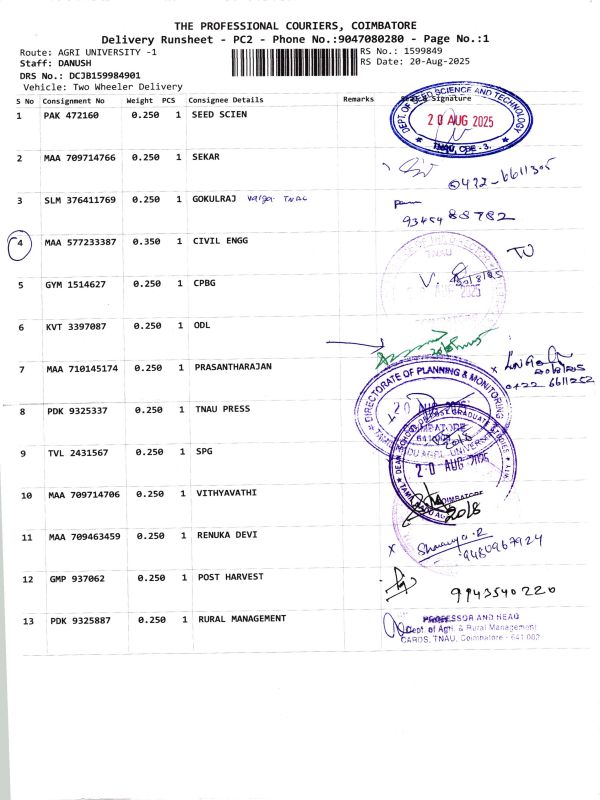 THE PROFESSIONAL COURIERS, COIMBATORE
Delivery Runsheet - PC2 - Phone No.:9047080280 - Page No.:1
Route: AGRI UNIVERSITY -1
RS No.: 1599849
Staff: DANUSH
RS Date: 20-Aug-2025
DRS No.: DCJB159984901
Vehicle: Two Wheeler Delivery
S No Consignment No Weight PCS Consignee Details Remarks Signature
1 PAK 472160 0.250 1 SEED SCIEN
DEPT. OF SEED SCIENCE AND TECHNOLOGY
20 AUG 2025
TNAU, CBE - 3.
2 MAA 709714766 0.250 1 SEKAR
0422-6611305
3 SLM 376411769 0.250 1 GOKULRAJ
4 MAA 577233387 0.350 1 CIVIL ENGG
TNAU
5 GYM 1514627 0.250 1 CPBG
6 KVT 3397087 0.250 1 ODL
7 MAA 710145174 0.250 1 PRASANTHARAJAN
0422 6611252
DIRECTORATE OF PLANNING & MONITORING
8 PDK 9325337 0.250 1 TNAU PRESS
20 AUG 2025
COIMBATORE
9 TVL 2431567 0.250 1 SPG
20 AUG 2025
10 MAA 709714706 0.250 1 VITHYAVATHI
COIMBATORE
2018
11 MAA 709463459 0.250 1 RENUKA DEVI
9480967924
12 GMP 937062 0.250 1 POST HARVEST
9943540220
13 PDK 9325887 0.250 1 RURAL MANAGEMENT
PROFESSOR AND HEAD
Dept. of Agri. & Rural Management
CARDS, TNAU, Coimbatore - 641 003